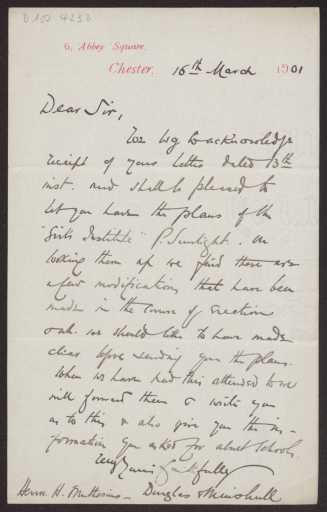 D 102 4233
6, Abbey Square,
Chester, 16th March 1901
Dear Sir,
We beg to acknowledge
receipt of yours letter dated 13th
inst. and shall be pleased to
let you have the plans of the
"Girls Institute" P. Sunlight. On
looking them up we find there are
a few modifications that have been
made in the course of erection
wh. we should like to have made
clear before sending you the plans.
When we have had this attended to we
will forward them & write you
as to this & also give you the in-
formation you asked for about Schools.
Very Yours faithfully
Herrn H. Muthesius - Douglas & Minshull